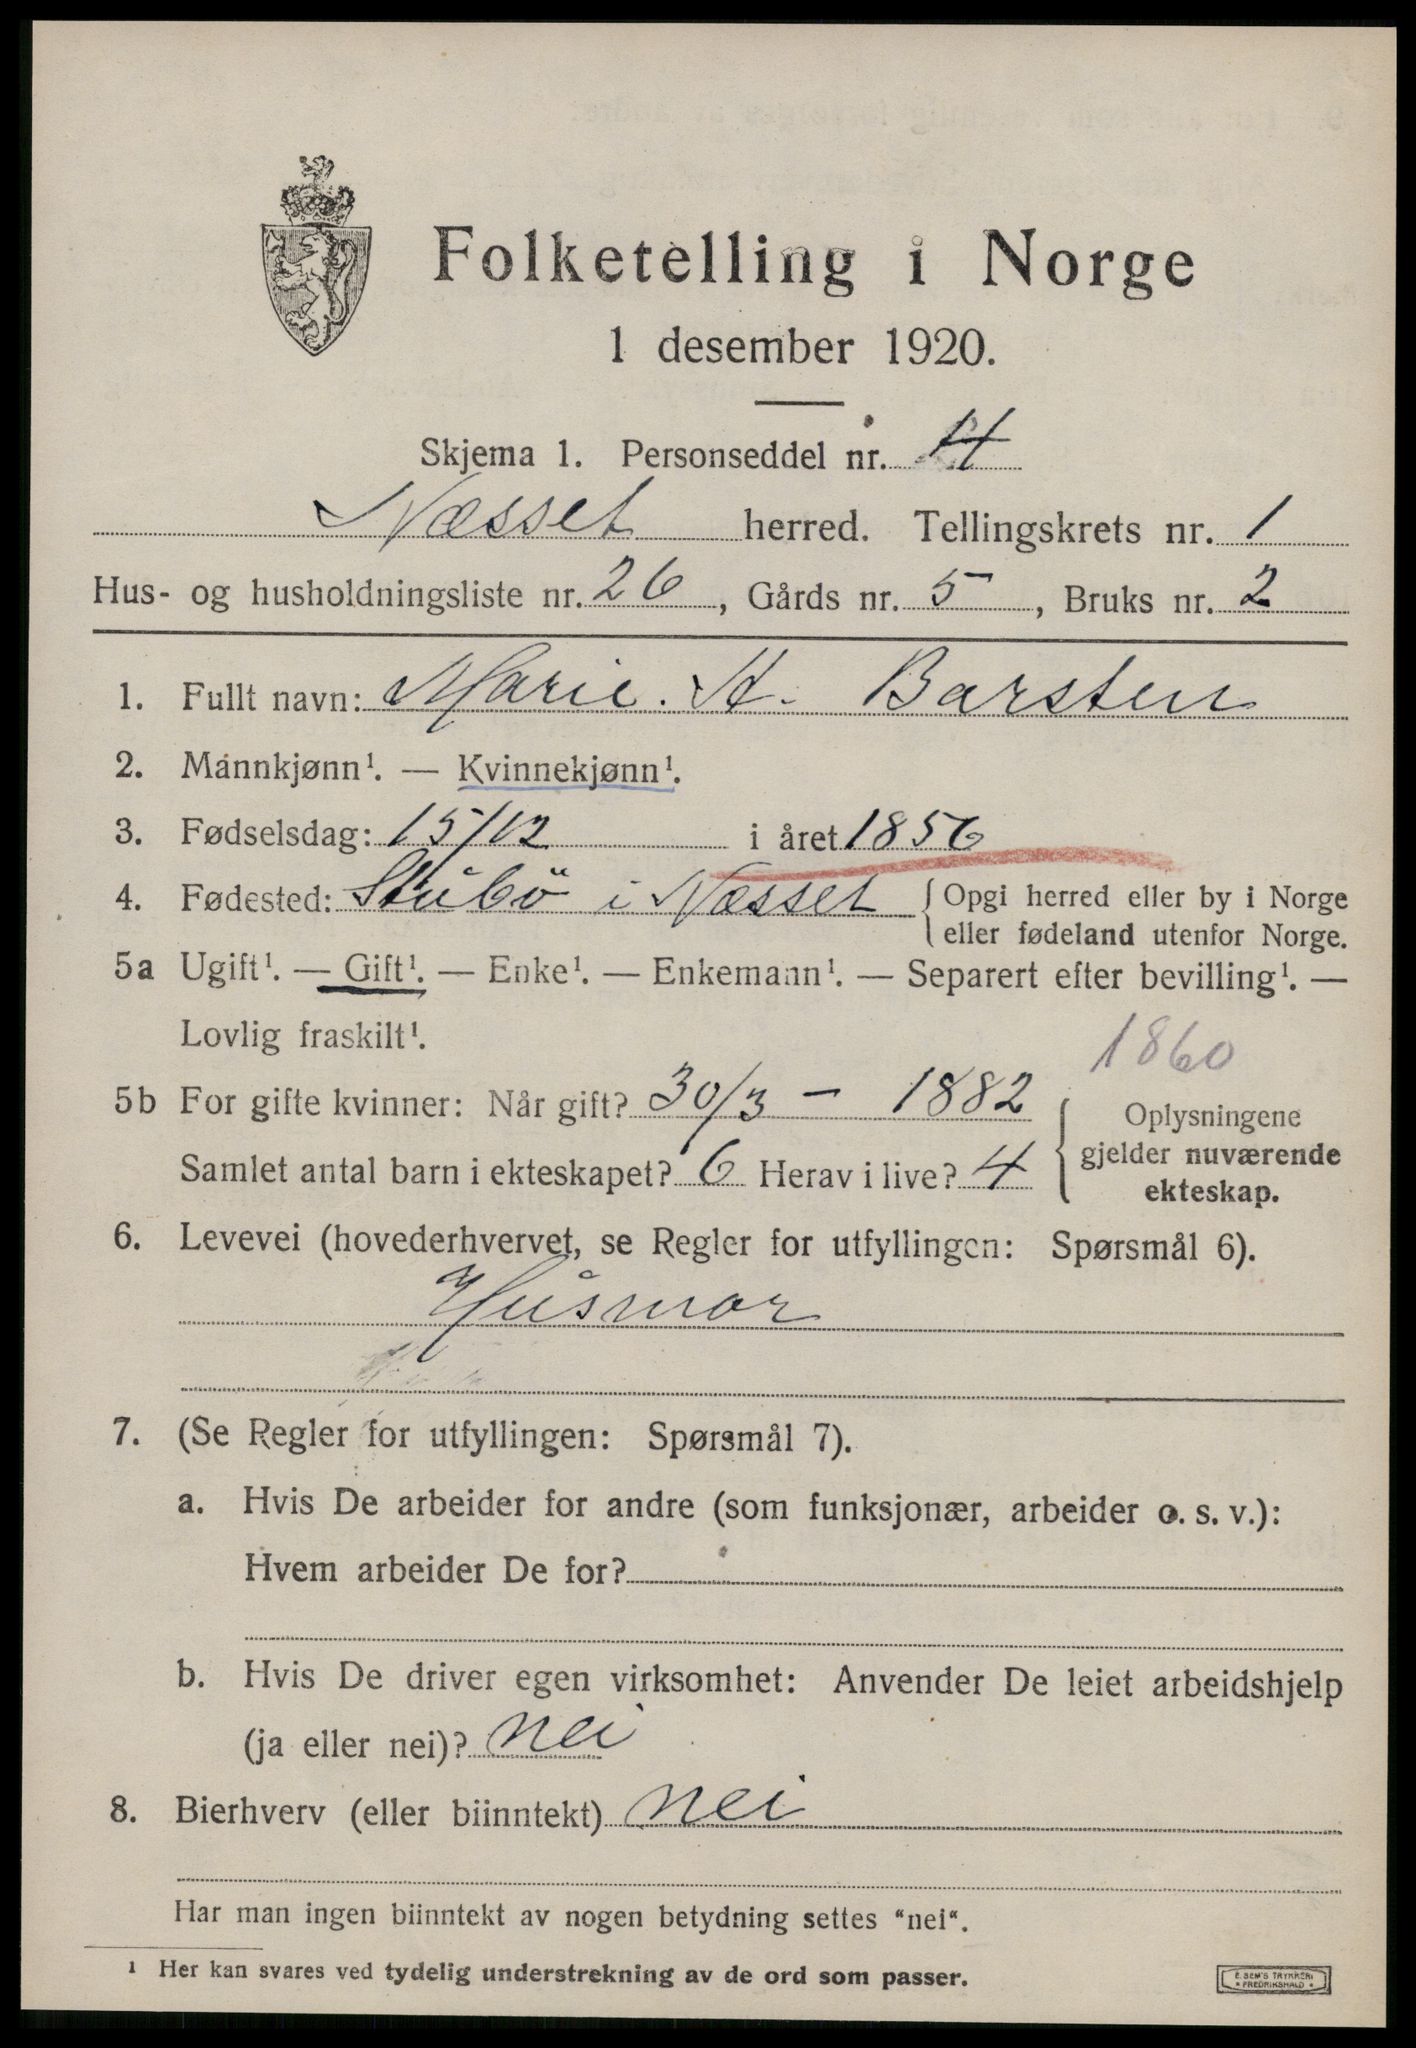 Folketelling i Norge
1 desember 1920.
Skjema 1. Personseddel nr. 4
Næsset herred. Tellingskrets nr. 1
Hus- og husholdningsliste nr. 26, Gårds nr. 5, Bruks nr. 2
1. Fullt navn: Marie. A. Barsten
2. Mannkjønn¹. — Kvinnekjønn¹.
3. Fødselsdag: 15/12 i året 1856
4. Fødested: Stubö i Næsset { Opgi herred eller by i Norge
eller fødeland utenfor Norge.
5a Ugift¹. — Gift¹. — Enke¹. — Enkemann¹. — Separert efter bevilling¹. —
Lovlig fraskilt¹.
1860
5b For gifte kvinner: Når gift? 30/3 – 1882
Samlet antal barn i ekteskapet? 6 Herav i live? 4
{ Oplysningene
gjelder nuværende
ekteskap.
6. Levevei (hovederhvervet, se Regler for utfyllingen: Spørsmål 6).
Husmor
7. (Se Regler for utfyllingen: Spørsmål 7).
a. Hvis De arbeider for andre (som funksjonær, arbeider o. s. v.):
Hvem arbeider De for?
b. Hvis De driver egen virksomhet: Anvender De leiet arbeidshjelp
(ja eller nei)? nei
8. Bierhverv (eller biinntekt) nei
Har man ingen biinntekt av nogen betydning settes "nei".
¹ Her kan svares ved tydelig understrekning av de ord som passer.
E. SEM'S TRYKKERI
* FREDRIKSHALD *